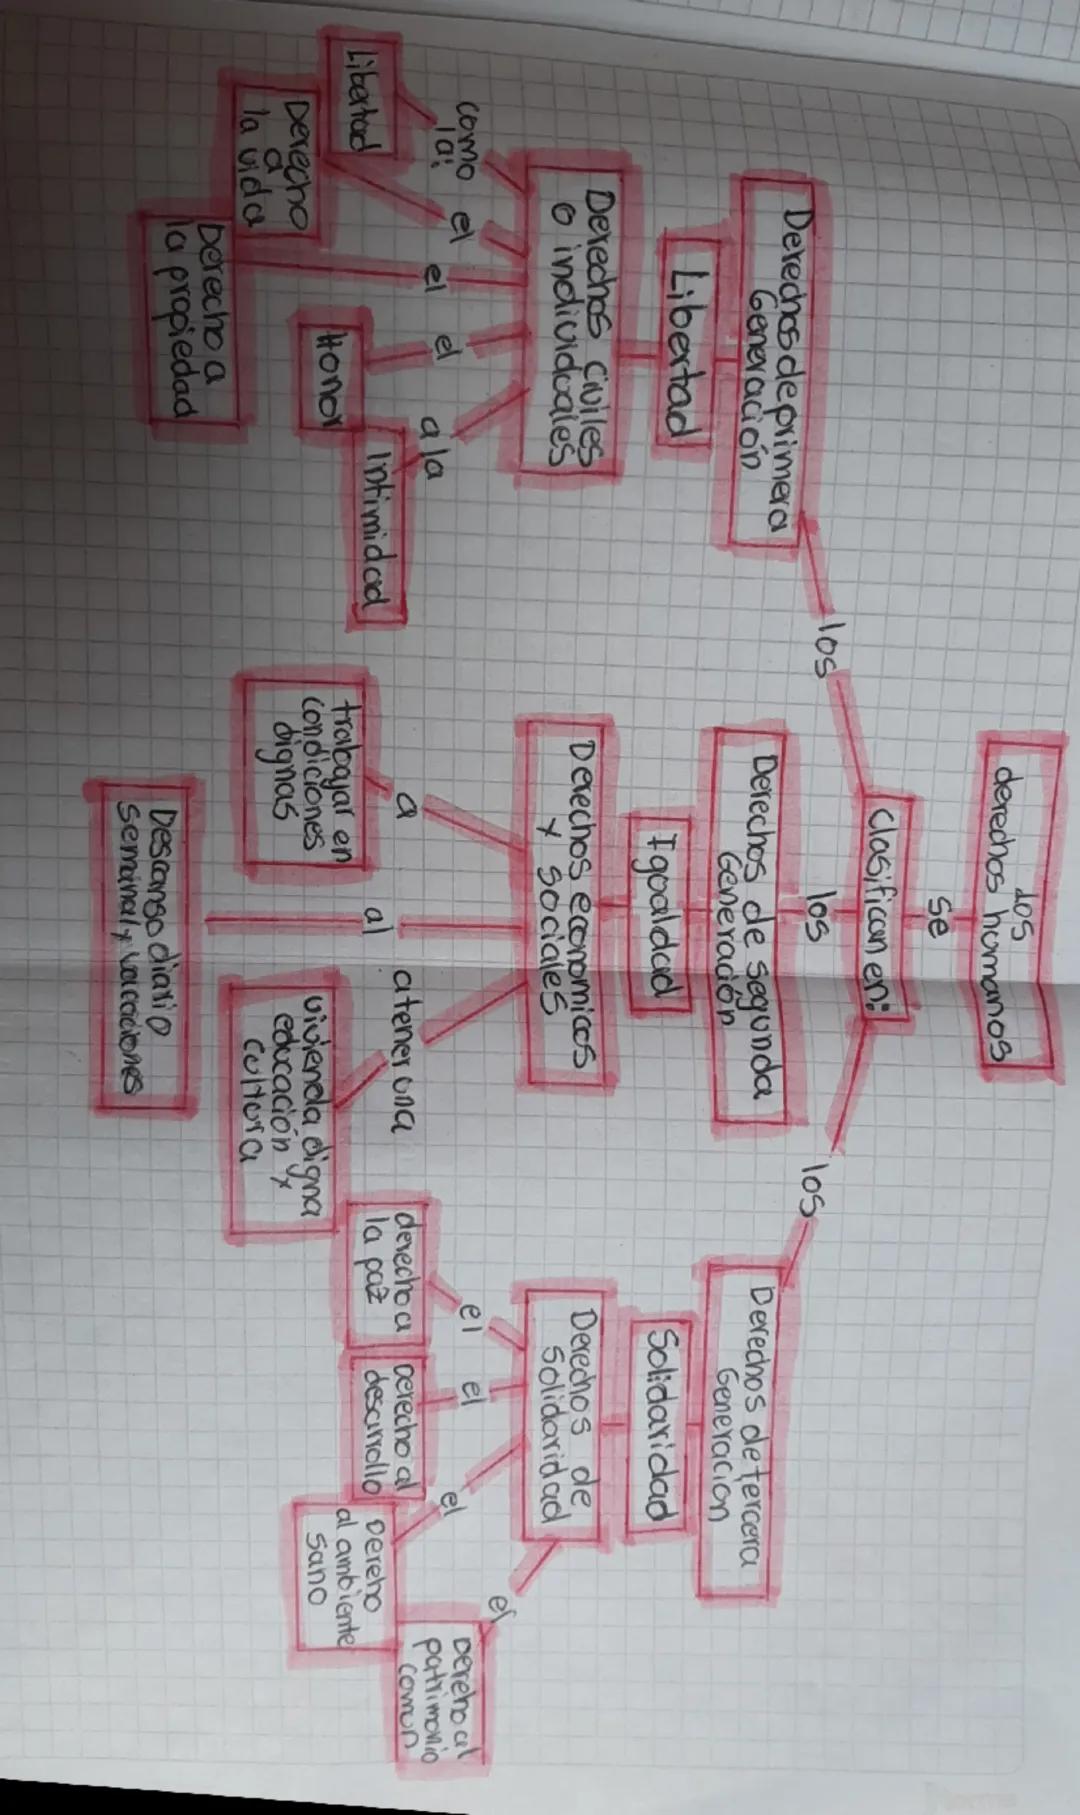 los
derechos humanos
se
Clasifican en:
los
los
los
Derechos de primera
Generación
Libertad
Derechos civiles
o individuales
como
la:
el
el
el
a la
Libertad
Derecho
a
la vida
Derecho a
la propiedad
Honor
Intimidad
Derechos de segunda
Generación
Igualdad
Derechos economicos
y sociales
a
al
a tener una
trabajar en
condiciones
dignas
Descanso diario
semanal y vacaciones
vivienda digna
educación y
cultura
Derechos de tercera
Generacion
Solidaridad
Derechos de
Solidaridad
el
el
el
el
derecho a
la paz
Derecho al
desarrollo
Dereho
al ambiente
sano
Dereho al
patrimonio
comun